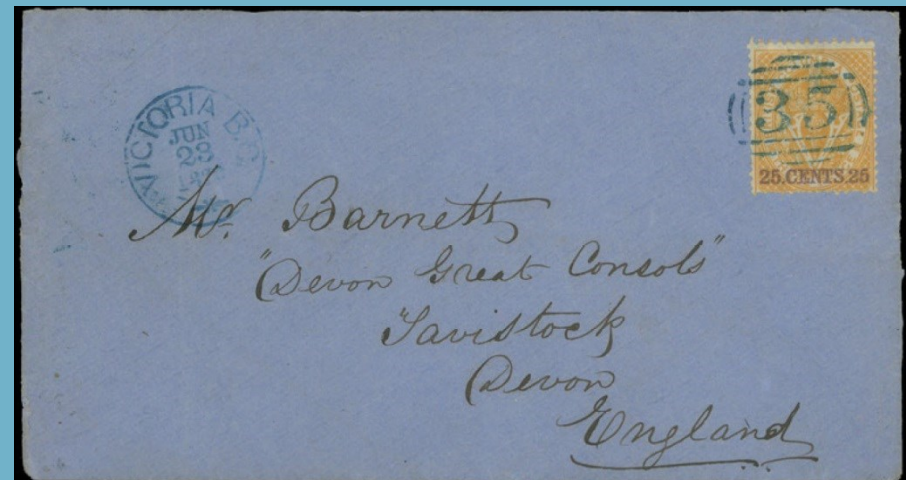 VICTORIA B.C.
JUN
23
35
25.CENTS.25
Mr. Barnett
"Devon Great Consols"
Tavistock
Devon
England